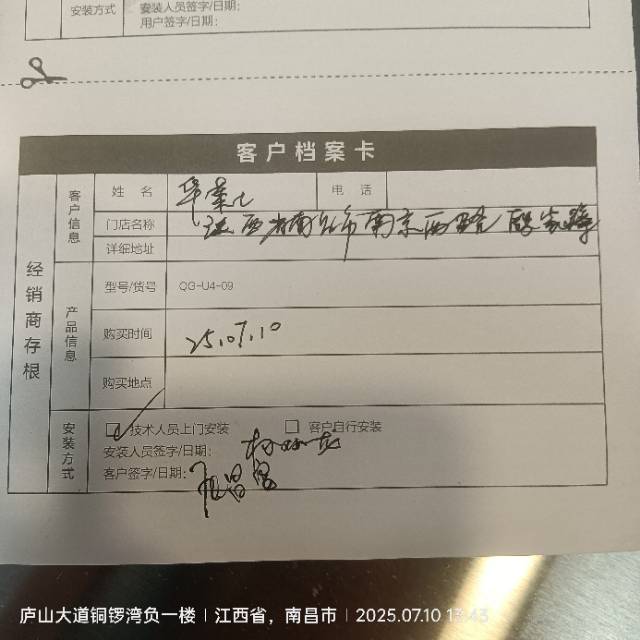 安装方式 安装人员签字/日期:
用户签字/日期:
客户档案卡
经销商存根
客户信息
姓 名 华莱士 电 话
门店名称 江西省南昌市南京西路
详细地址
产品信息
型号/货号 QG-U4-09
购买时间 25.07.10
购买地点
安装方式
技术人员上门安装 客户自行安装
安装人员签字/日期:
客户签字/日期:
庐山大道铜锣湾负一楼 | 江西省，南昌市 | 2025.07.10 13:43